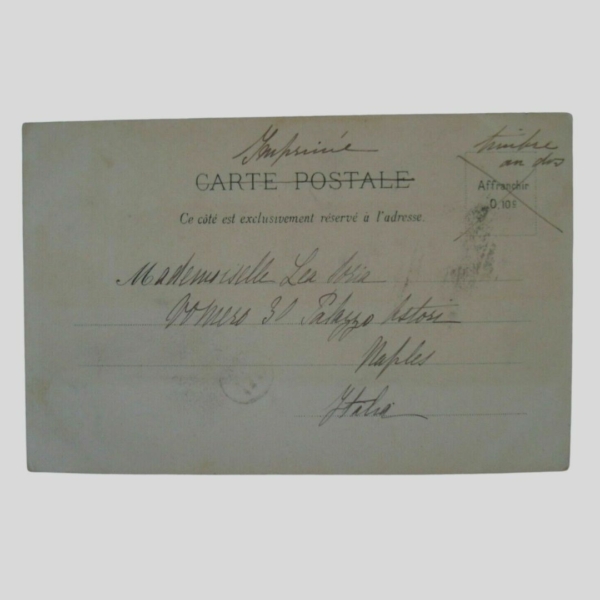 Imprimé
timbre
au dos
CARTE POSTALE
Affranchir
0.10s
Ce côté est exclusivement réservé à l'adresse.
Mademoiselle Lea
Vomero 30 Palazzo Astori
Naples
Italia